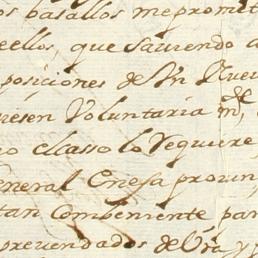 os basallos me promet
eellos, que saviendo a
posiciones de Vn Rue
uiesen Voluntaria m.de,
o el casso lo Requiere
General en esa provin
tan combeniente par
prevendados de Vra y